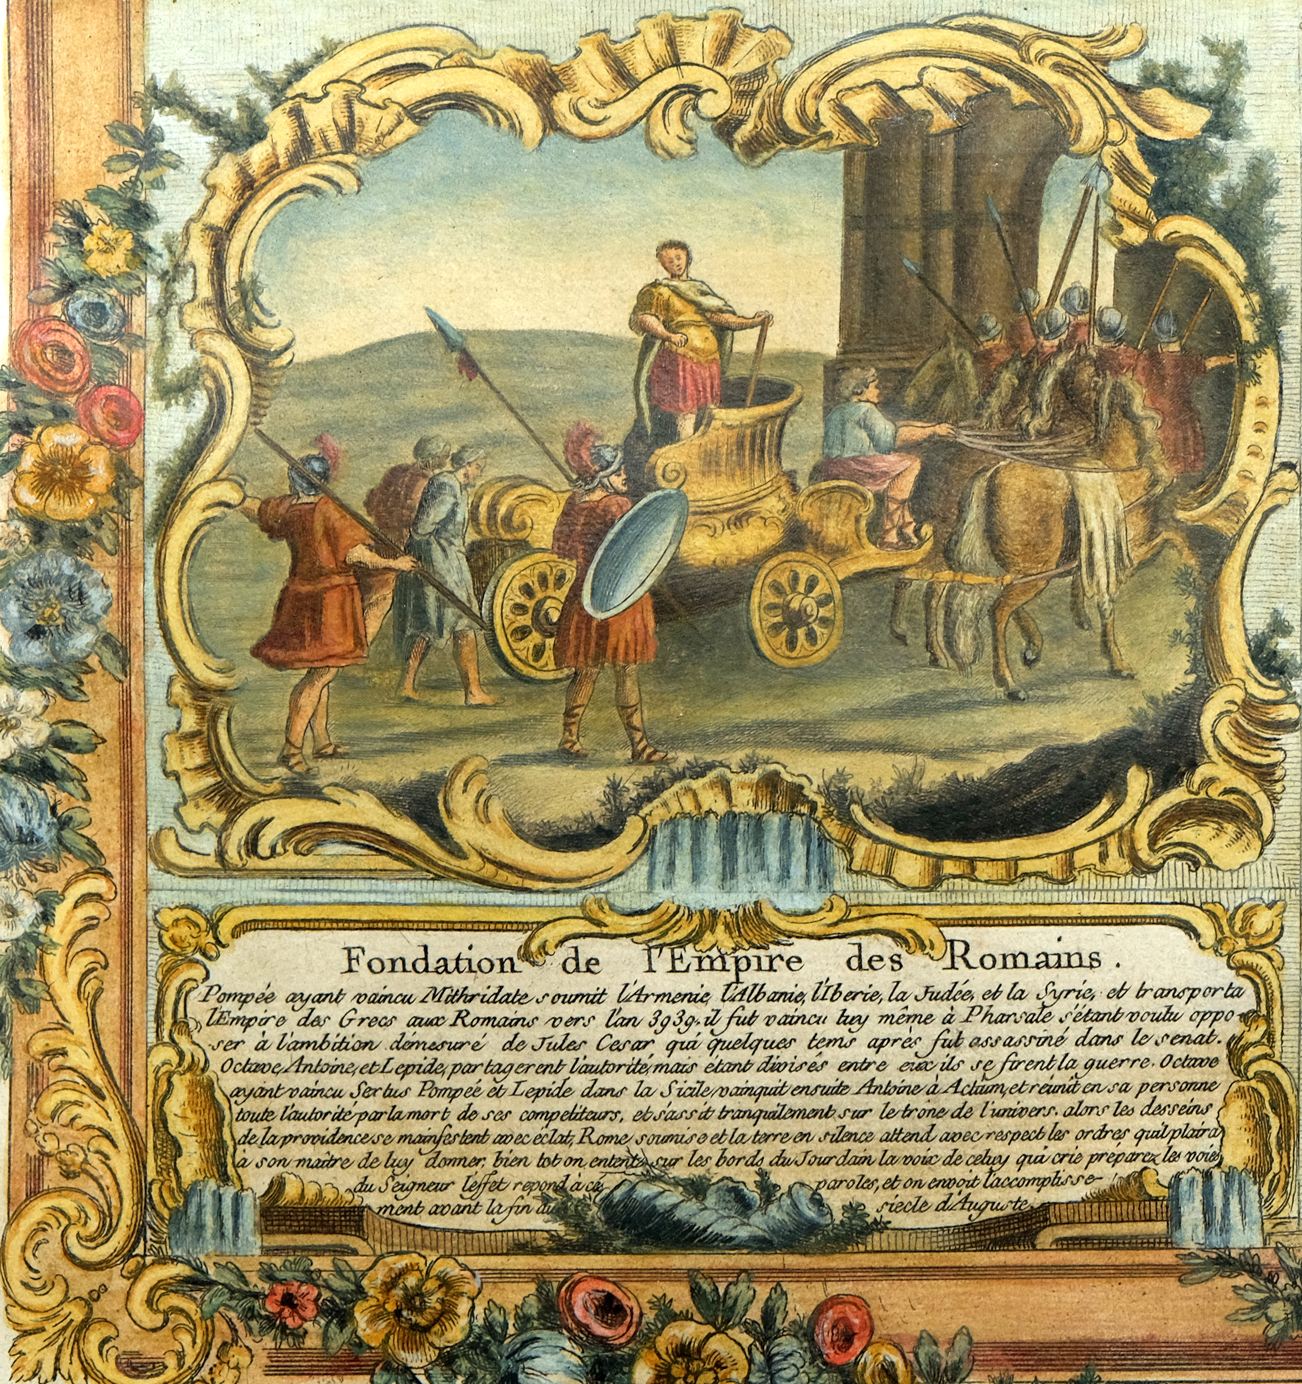 Fondation de l'Empire des Romains.
Pompée ayant vaincu Mithridate soumit l'Armenie, l'Albanie, l'Iberie, la Judée, et la Syrie, et transporta
l'Empire des Grecs aux Romains vers l'an 3939. il fut vaincu luy même à Pharsale s'étant voulu oppo-
ser à l'ambition démesuré de Jules Cesar qui quelques tems après fut assassiné dans le senat.
Octave, Antoine, et Lepide, partagerent l'autorité, mais étant divisés entre eux ils se firent la guerre. Octave
ayant vaincu Sertus Pompée et Lepide dans la Sicile, vainquit ensuite Antoine à Actium, et reunit en sa personne
toute l'autorité par la mort de ses competiteurs, et s'assit tranquilement sur le trone de l'univers. alors les desseins
de la providence se manifestent avec éclat, Rome soumise et la terre en silence attend avec respect les ordres qu'il plaira
à son maître de luy donner. bien tot on entend sur les bords du Jourdain la voix de celuy qui crie preparez les voies
du Seigneur l'effet repond à ces paroles, et on envoit l'accomplisse-
ment avant la fin du siecle d'Auguste.